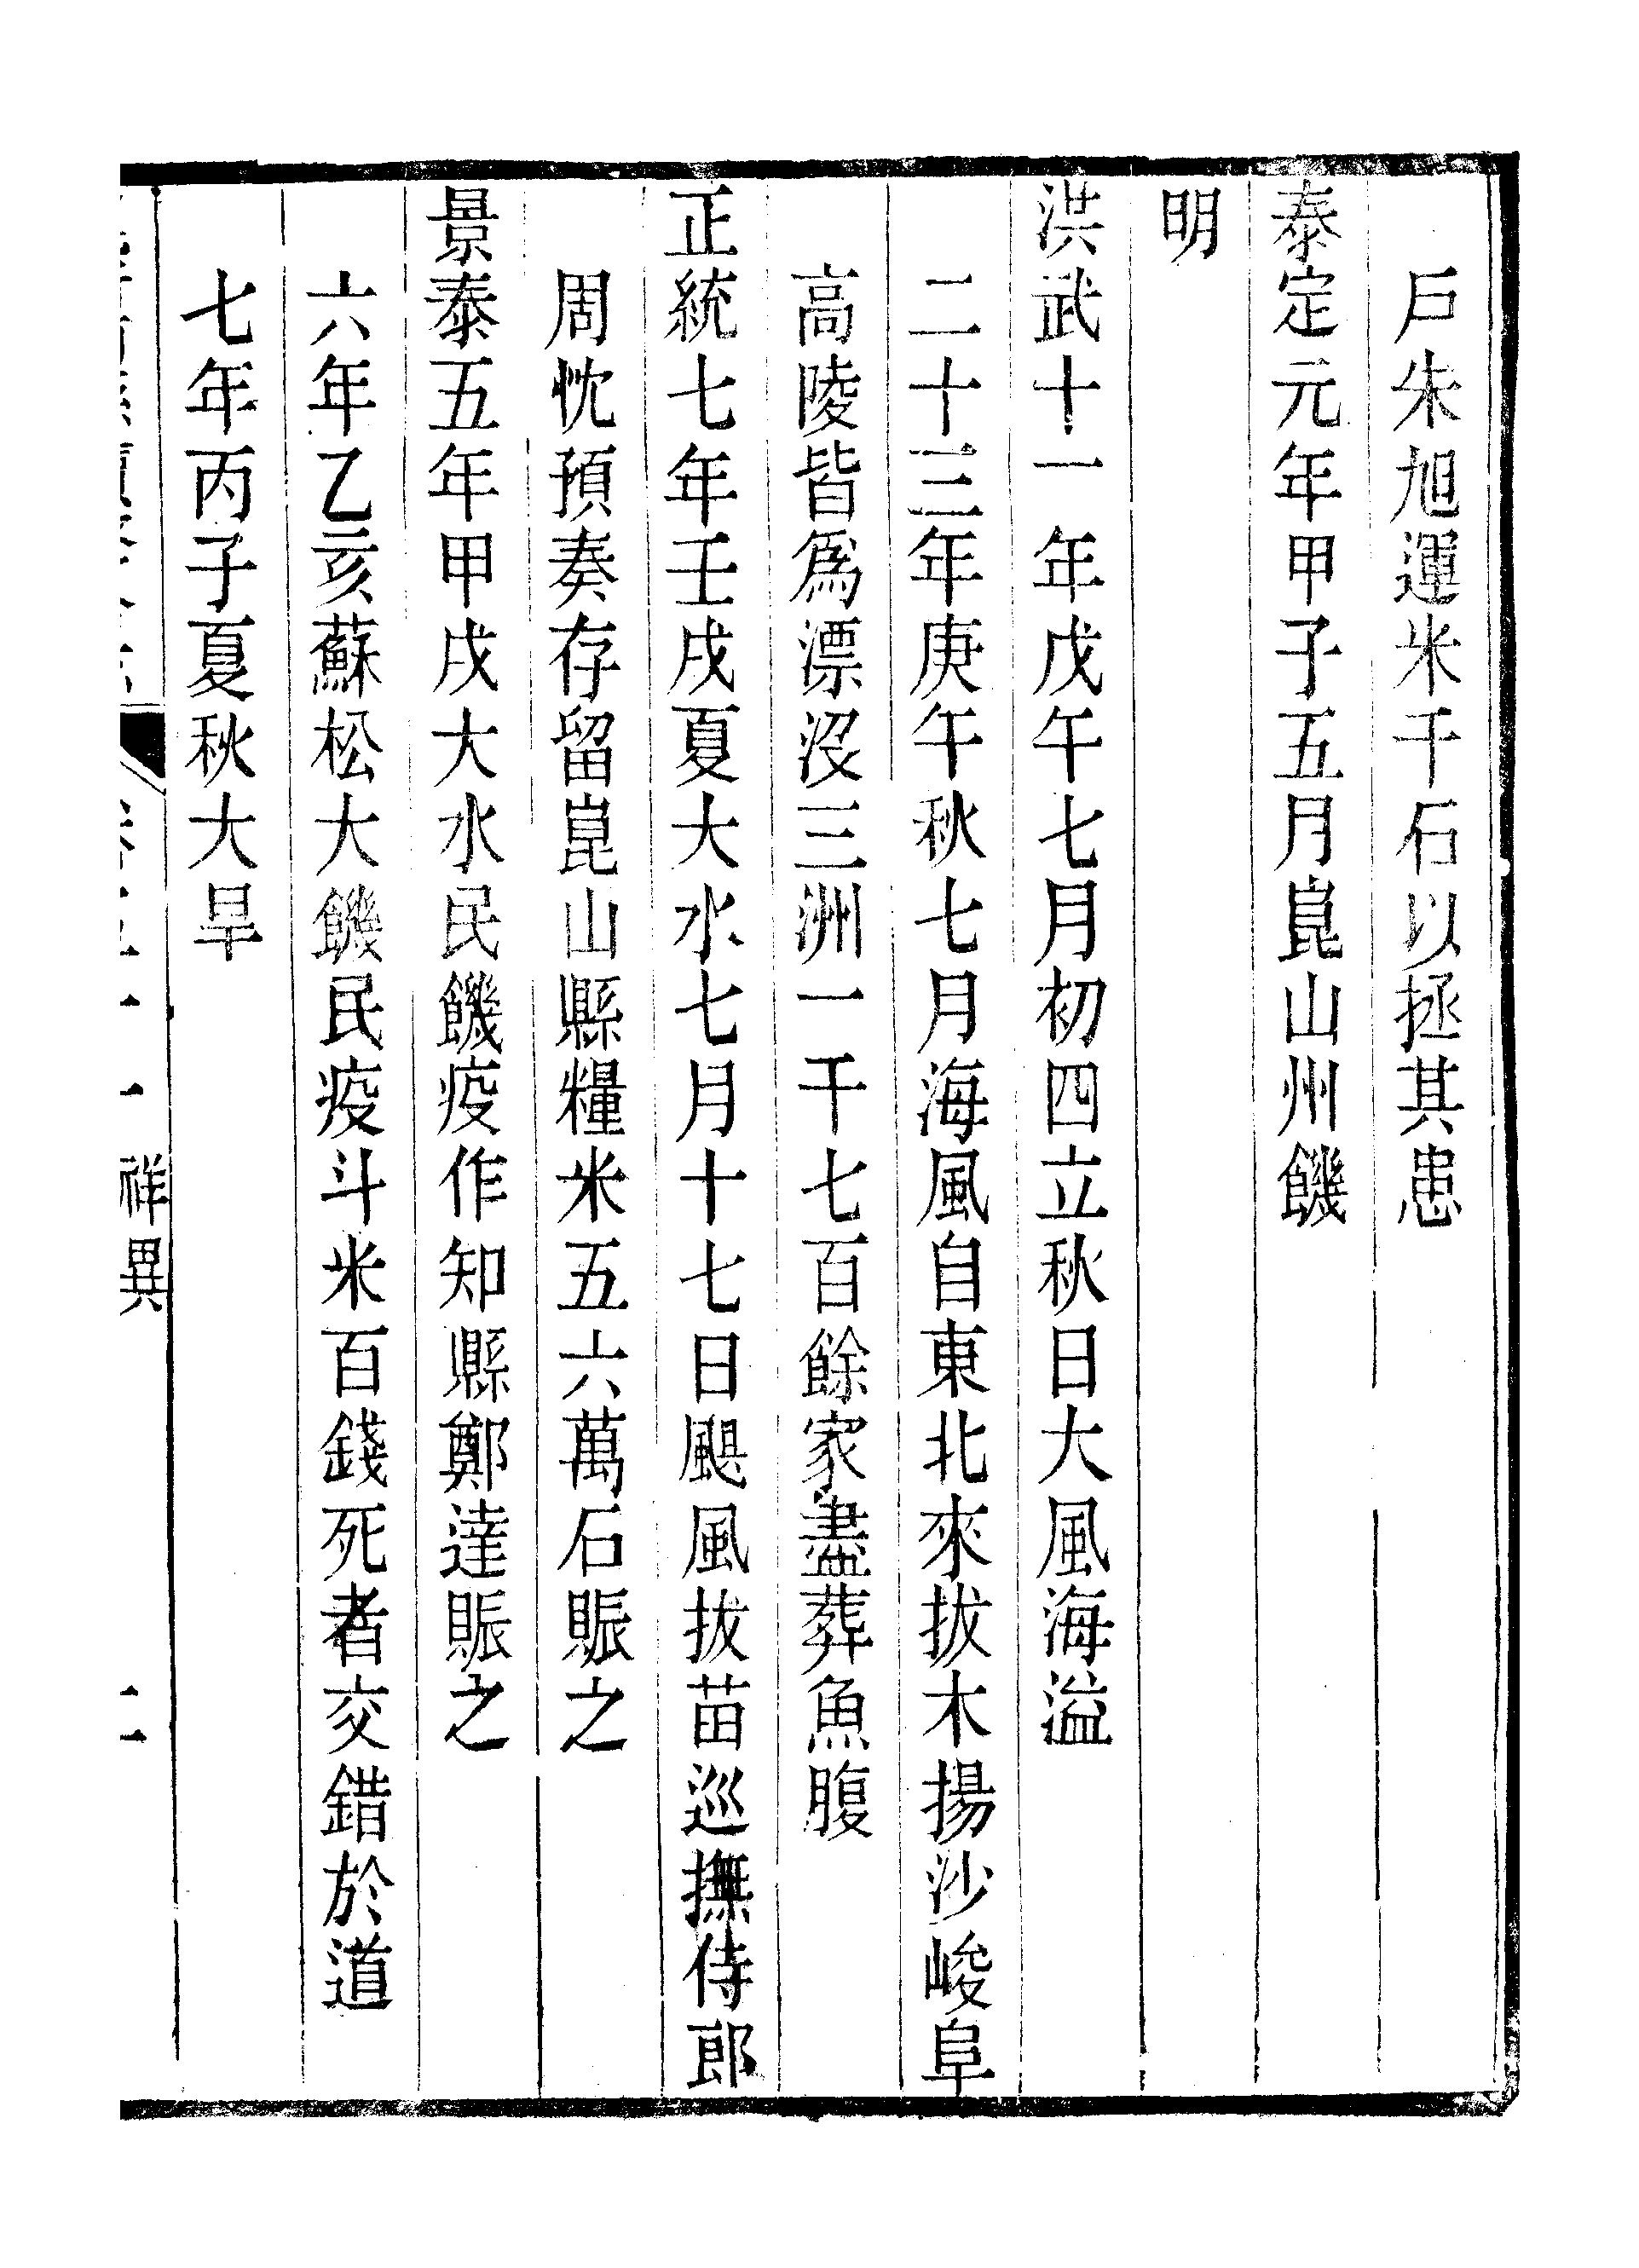 戶朱旭運米千石以拯其患
泰定元年甲子五月崑山州饑
明
洪武十一年戊午七月初四立秋日大風海溢
二十三年庚午秋七月海風自東北來拔木揚沙峻阜
高陵皆爲漂沒三洲一千七百餘家盡葬魚腹
正統七年壬戌夏大水七月十七日颶風拔苗巡撫侍郎
周忱預奏存留崑山縣糧米五六萬石賑之
景泰五年甲戌大水民饑疫作知縣鄭達賑之
六年乙亥蘇松大饑民疫斗米百錢死者交錯於道
七年丙子夏秋大旱
祥異
二